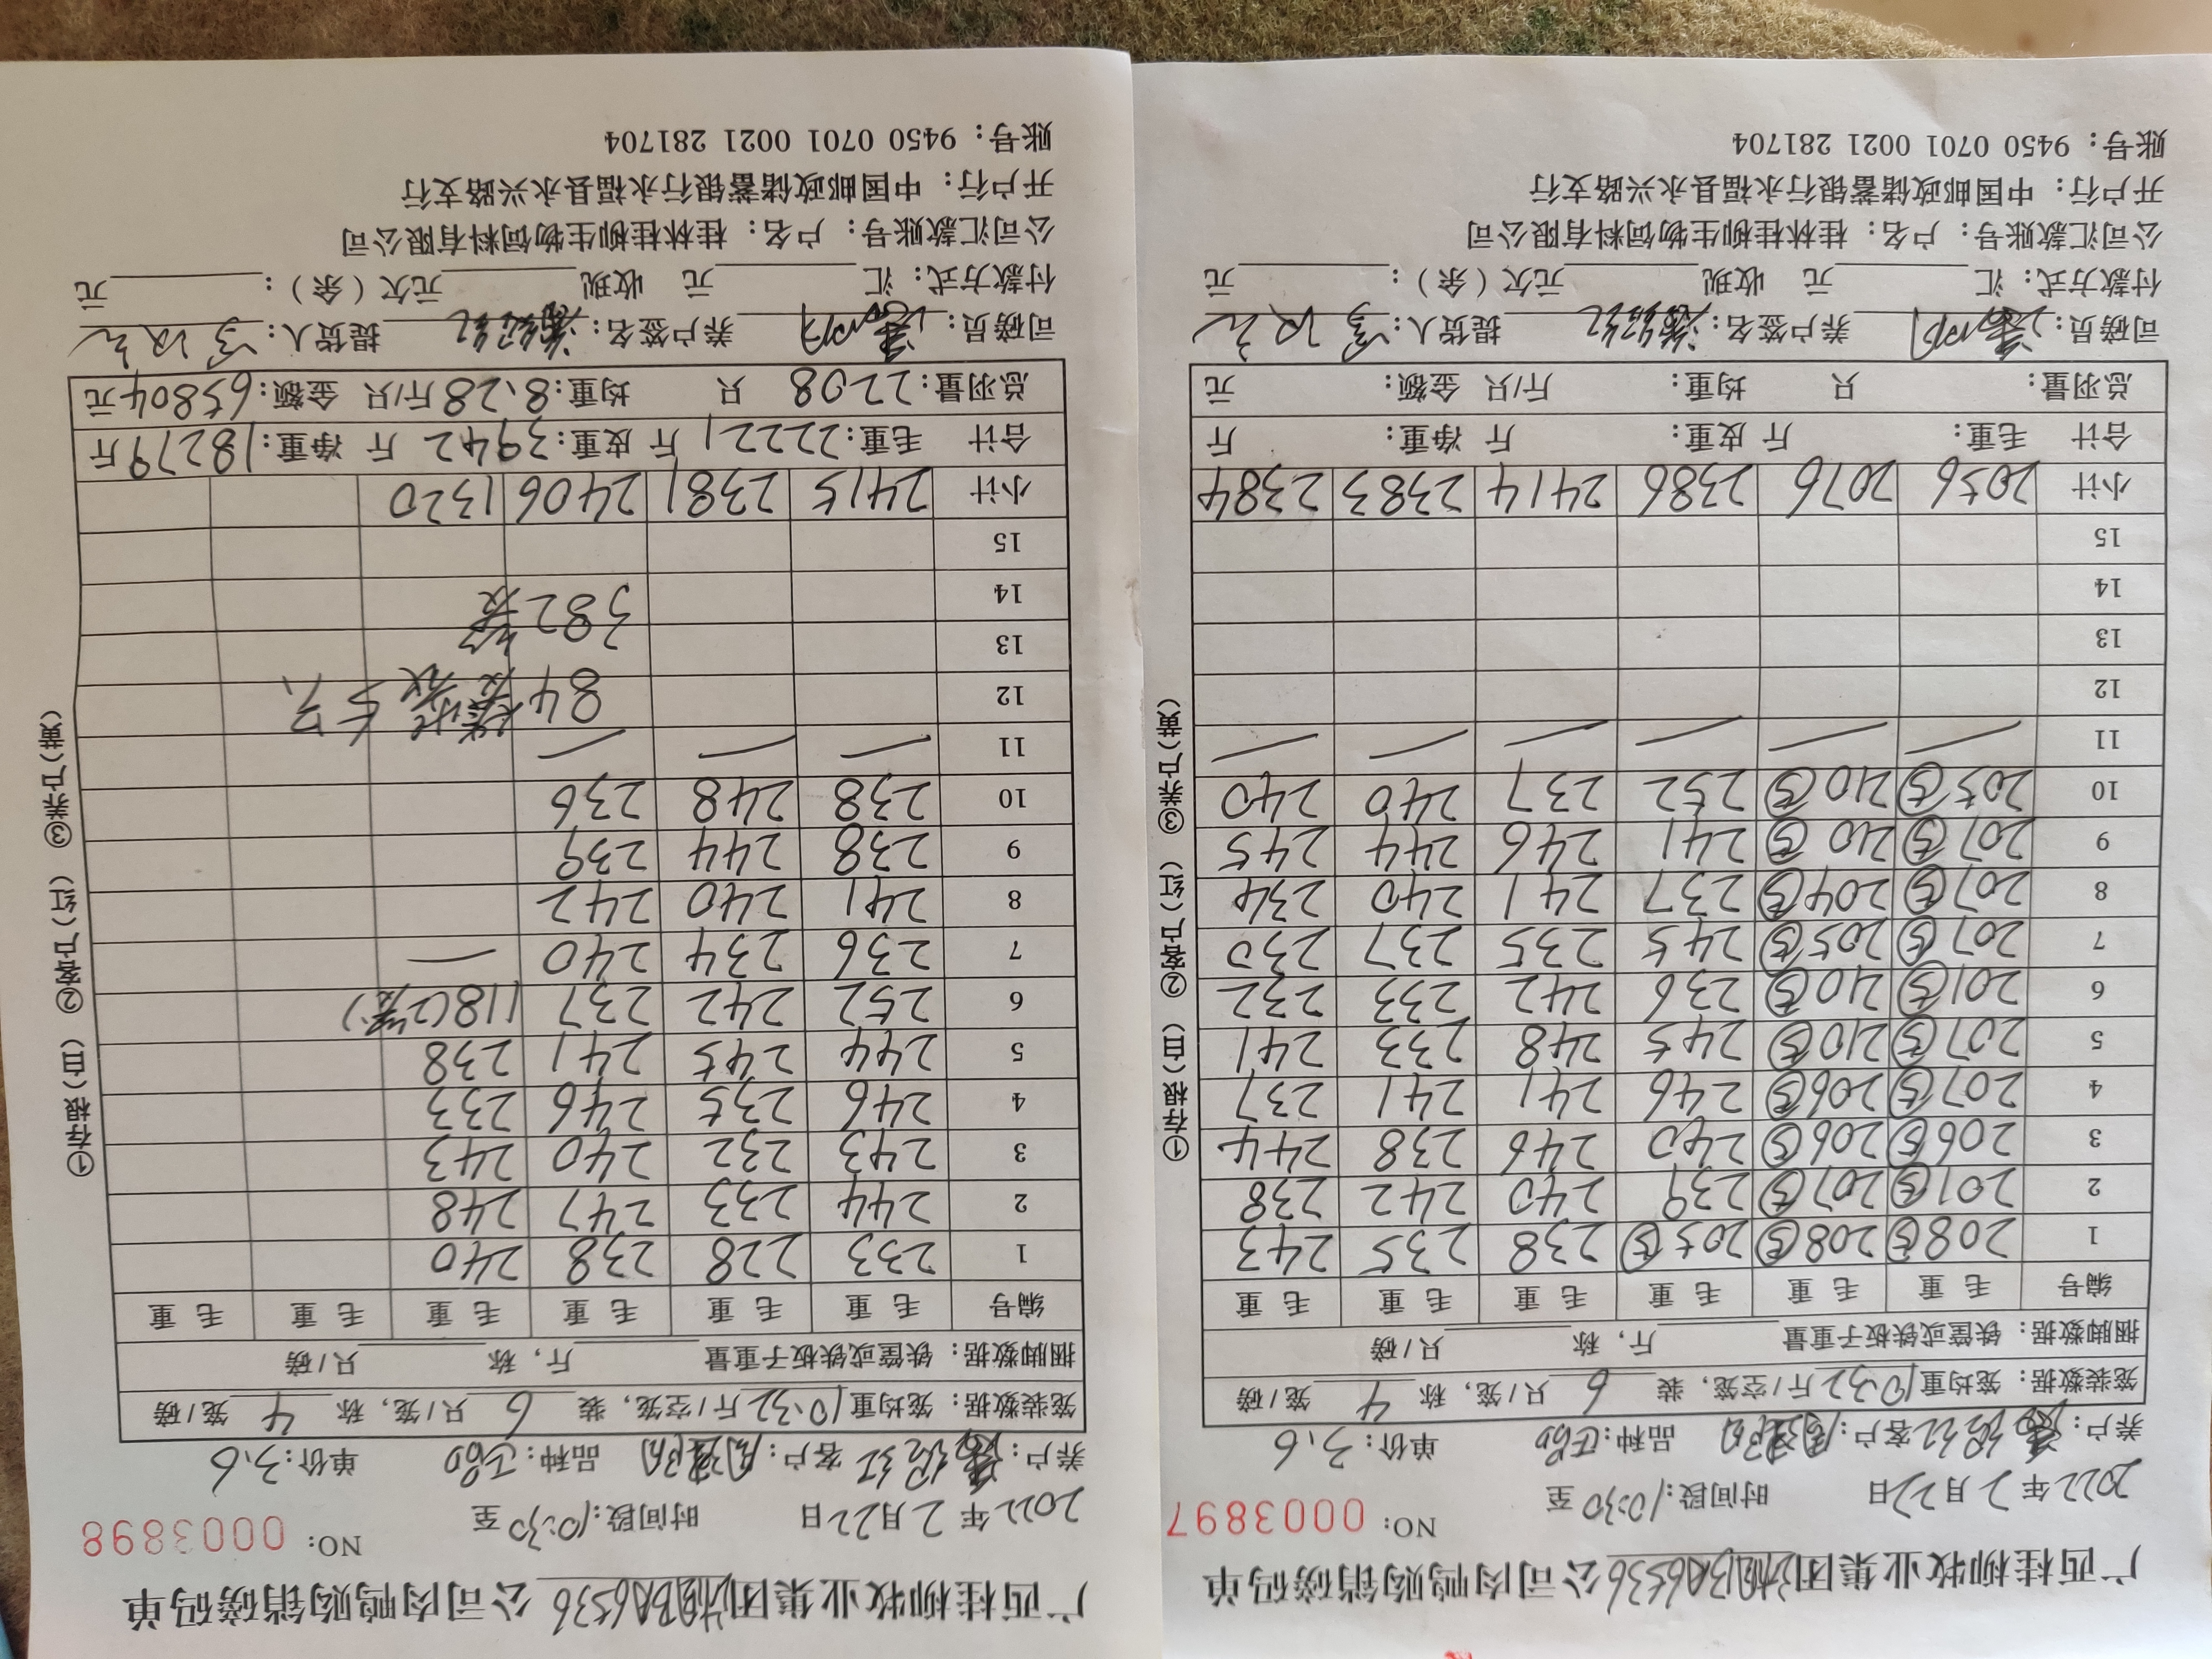 广西桂柳牧业集团 BA6536 公司肉鸭购销磅码单
NO: 0003897
2022年2月22日 时间段:10:30至
养户: 客户: 品种: 单价:3.6
笼装数据: 笼均重10.32斤/空笼, 装 6 只/笼, 称 4 笼/磅
捆脚数据: 铁筐或铁板子重量 斤, 称 只/磅
编号 毛重 毛重 毛重 毛重 毛重 毛重
1 208⑤ 208⑤ 205⑤ 238 235 243
2 201⑤ 207⑤ 239 240 242 238
3 206⑤ 206⑤ 240 246 238 244
4 207⑤ 206⑤ 246 241 241 237
5 207⑤ 210⑤ 245 248 233 241
6 201⑤ 210⑤ 236 242 233 232
7 207⑤ 205⑤ 245 235 237 230
8 207⑤ 204⑤ 237 241 240 234
9 207⑤ 210⑤ 241 246 244 245
10 205⑤ 210⑤ 252 237 240 240
11
12
13
14
15
小计 2056 2076 2386 2414 2383 2384
合计 毛重: 斤 皮重: 斤 净重: 斤
总羽量: 只 均重: 斤/只 金额: 元
司磅员: 养户签名: 提货人:
付款方式: 汇 元 收现 元欠(余): 元
公司汇款账号: 户名: 桂林桂柳生物饲料有限公司
开户行: 中国邮政储蓄银行永福县永兴路支行
账号: 9450 0701 0021 281704
①存根(白) ②客户(红) ③养户(黄)
广西桂柳牧业集团 BA6536 公司肉鸭购销磅码单
NO: 0003898
2022年2月22日 时间段:10:30至
养户: 客户: 品种: 单价:3.6
笼装数据: 笼均重10.32斤/空笼, 装 6 只/笼, 称 4 笼/磅
捆脚数据: 铁筐或铁板子重量 斤, 称 只/磅
编号 毛重 毛重 毛重 毛重 毛重 毛重
1 233 228 238 240
2 244 233 247 248
3 243 232 240 243
4 246 235 246 233
5 244 245 241 238
6 252 242 237 118(2笼)
7 236 234 240 —
8 241 240 242
9 238 244 239
10 238 248 236
11
12 84
13 382
14
15
小计 2415 2381 2406 1320
合计 毛重:22221斤 皮重:3942斤 净重:18279斤
总羽量:2208只 均重:8.28斤/只 金额:65804元
司磅员: 养户签名: 提货人:
付款方式: 汇 元 收现 元欠(余): 元
公司汇款账号: 户名: 桂林桂柳生物饲料有限公司
开户行: 中国邮政储蓄银行永福县永兴路支行
账号: 9450 0701 0021 281704
①存根(白) ②客户(红) ③养户(黄)